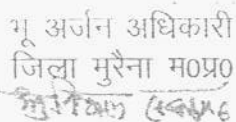 भू अर्जन अधिकारी
जिला मुरैना म0प्र0